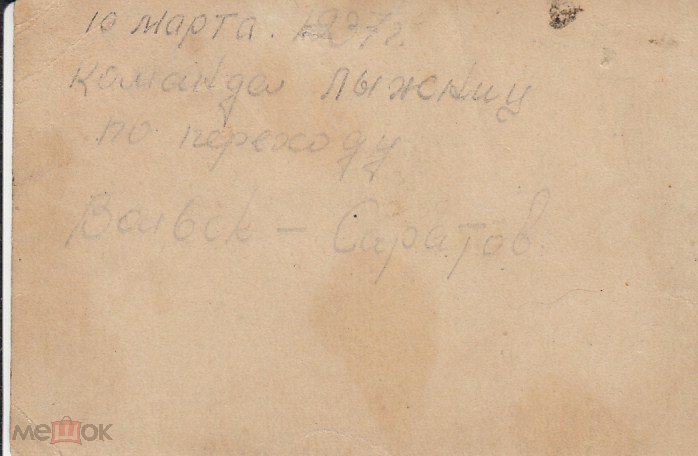 10 марта. 1937 г.
команда лыжниц
по переходу
Вольск – Саратов
мешок